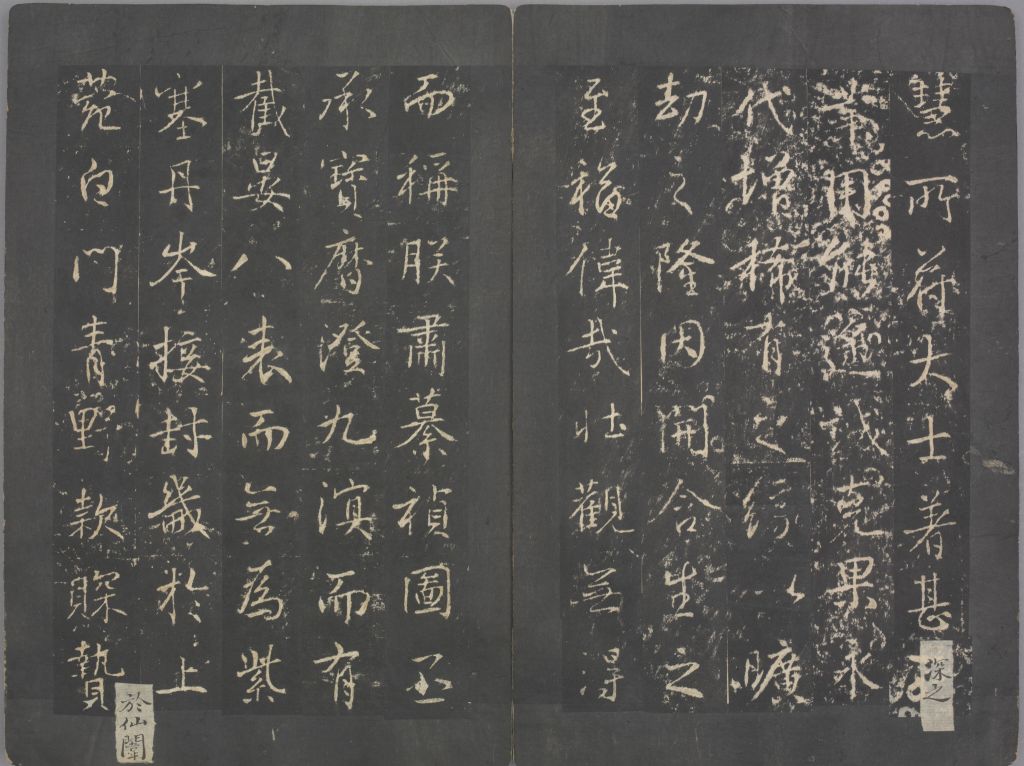 慧所符大士著甚深之
業用能遞成克果永
代增稀有之綜曠
劫之隆因開含生之
至福偉哉壯觀無得
而稱朕肅纂禎圖丕
承寶曆澄九溟而有
截晏八表而無為紫
塞丹岑接封畿於上
菀白門青野款賝贄
於仙闈